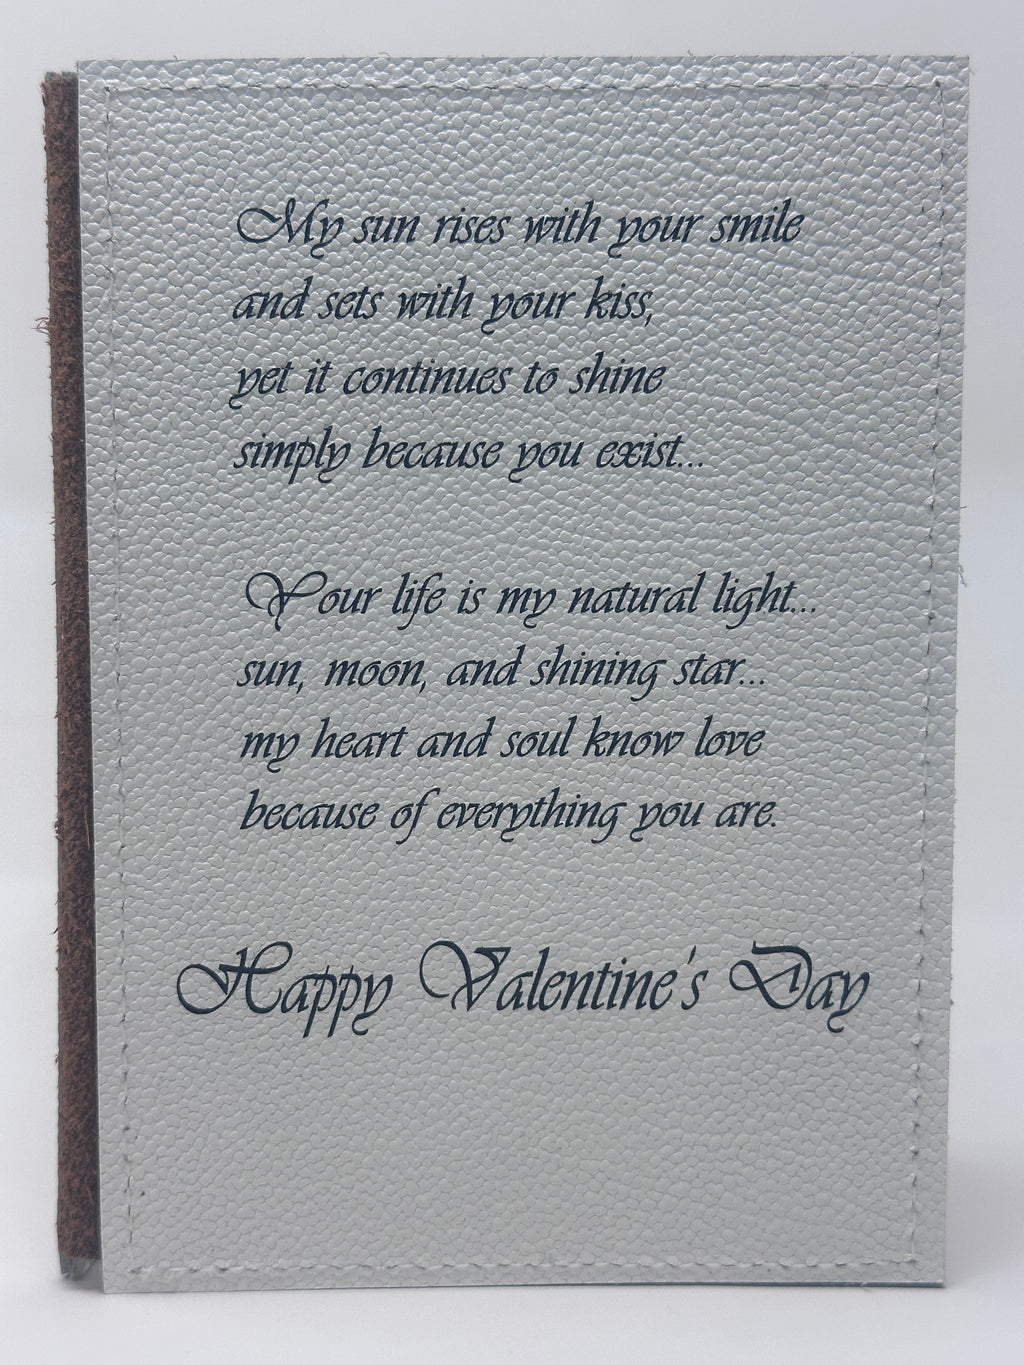 My sun rises with your smile
and sets with your kiss,
yet it continues to shine
simply because you exist...
Your life is my natural light...
sun, moon, and shining star...
my heart and soul know love
because of everything you are.
Happy Valentine's Day